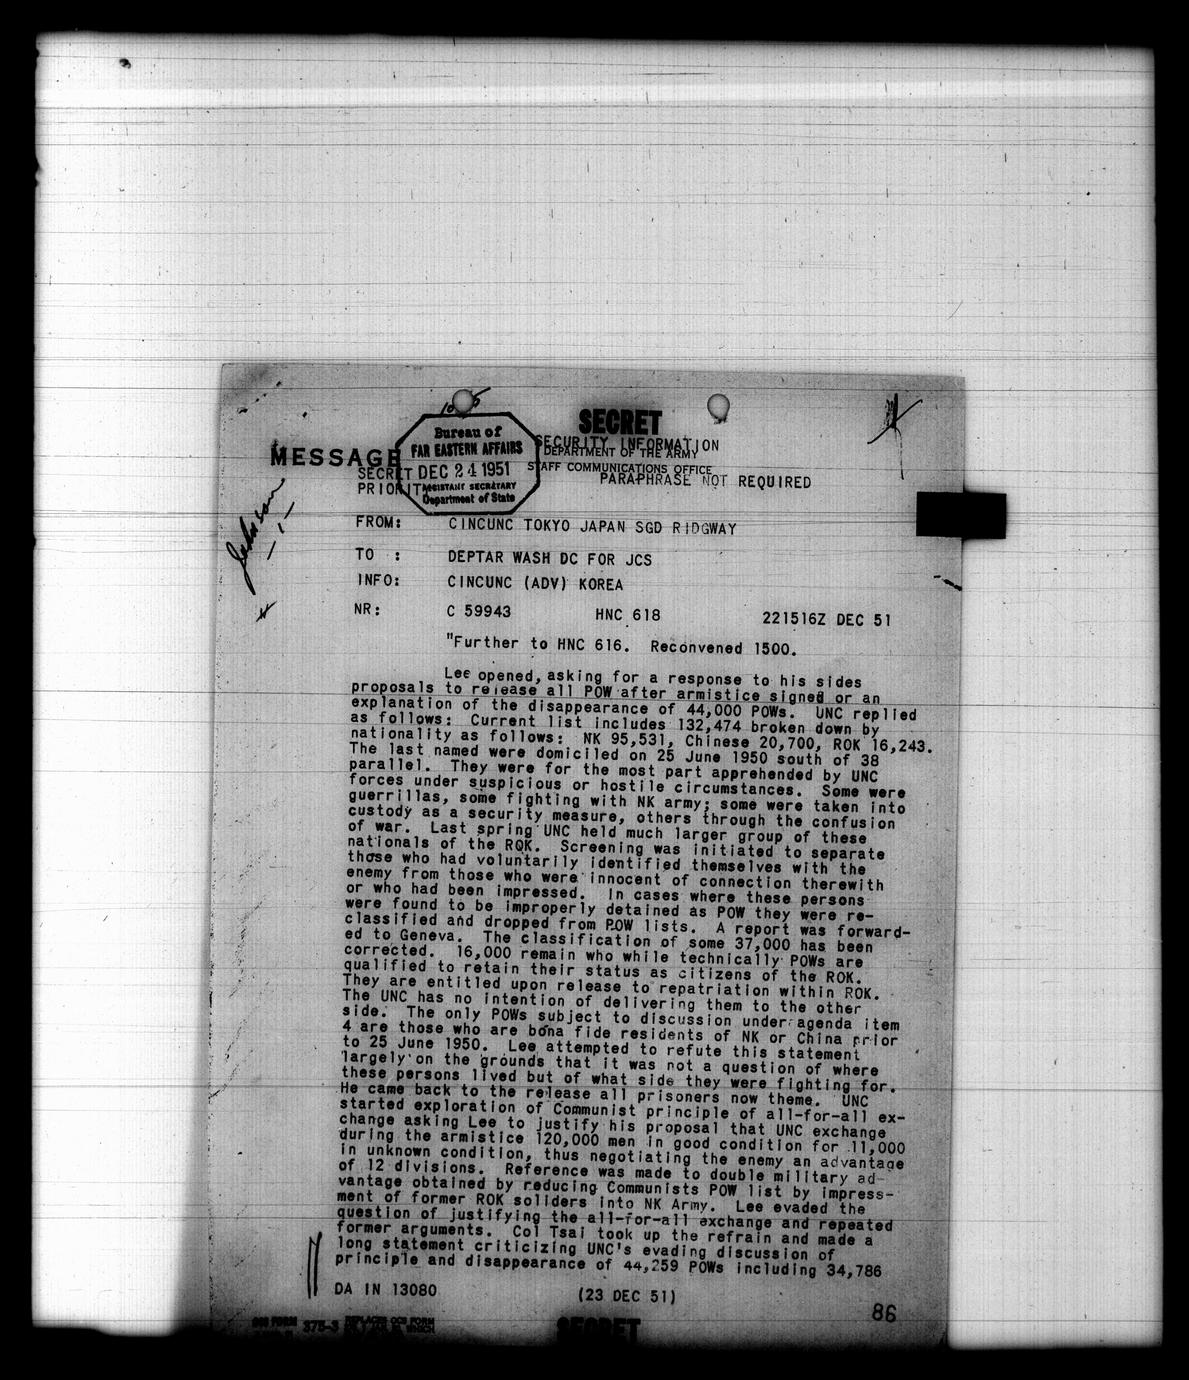 SECRET
Bureau of
FAR EASTERN AFFAIRS
DEC 24 1951
ASSISTANT SECRETARY
Department of State
SECURITY INFORMATION
DEPARTMENT OF THE ARMY
STAFF COMMUNICATIONS OFFICE
MESSAGE
SECRET
PARAPHRASE NOT REQUIRED
PRIORITY
Johnson
FROM: CINCUNC TOKYO JAPAN SGD RIDGWAY
TO : DEPTAR WASH DC FOR JCS
INFO: CINCUNC (ADV) KOREA
NR: C 59943 HNC 618 221516Z DEC 51
"Further to HNC 616. Reconvened 1500.
Lee opened, asking for a response to his sides
proposals to release all POW after armistice signed or an
explanation of the disappearance of 44,000 POWs. UNC replied
as follows: Current list includes 132,474 broken down by
nationality as follows: NK 95,531, Chinese 20,700, ROK 16,243.
The last named were domiciled on 25 June 1950 south of 38
parallel. They were for the most part apprehended by UNC
forces under suspicious or hostile circumstances. Some were
guerrillas, some fighting with NK army; some were taken into
custody as a security measure, others through the confusion
of war. Last spring UNC held much larger group of these
nationals of the ROK. Screening was initiated to separate
those who had voluntarily identified themselves with the
enemy from those who were innocent of connection therewith
or who had been impressed. In cases where these persons
were found to be improperly detained as POW they were re-
classified and dropped from POW lists. A report was forward-
ed to Geneva. The classification of some 37,000 has been
corrected. 16,000 remain who while technically POWs are
qualified to retain their status as citizens of the ROK.
They are entitled upon release to repatriation within ROK.
The UNC has no intention of delivering them to the other
side. The only POWs subject to discussion under agenda item
4 are those who are bona fide residents of NK or China prior
to 25 June 1950. Lee attempted to refute this statement
largely on the grounds that it was not a question of where
these persons lived but of what side they were fighting for.
He came back to the release all prisoners now theme. UNC
started exploration of Communist principle of all-for-all ex-
change asking Lee to justify his proposal that UNC exchange
during the armistice 120,000 men in good condition for 11,000
in unknown condition, thus negotiating the enemy an advantage
of 12 divisions. Reference was made to double military ad-
vantage obtained by reducing Communists POW list by impress-
ment of former ROK soliders into NK Army. Lee evaded the
question of justifying the all-for-all exchange and repeated
former arguments. Col Tsai took up the refrain and made a
long statement criticizing UNC's evading discussion of
principle and disappearance of 44,259 POWs including 34,786
DA IN 13080 (23 DEC 51)
86
OCS FORM 375-3 REPLACES OCS FORM
WHICH
SECRET